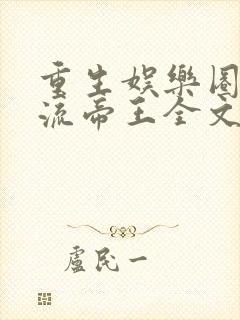 重生娛樂圈
流帝王全文
盧民一